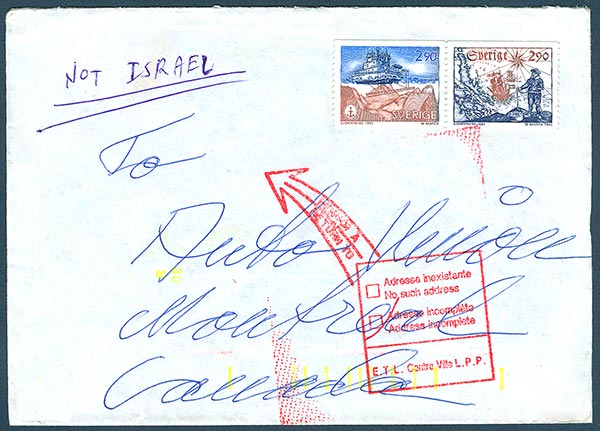 2.90
Sverige 2.90
SVERIGE
NOT ISRAEL
To
Auto Union
RETURN TO
Adresse inexistante
No such address
Montreal
Adresse incomplète
Address incomplete
Canada
E.T.L. Centre Ville L.P.P.